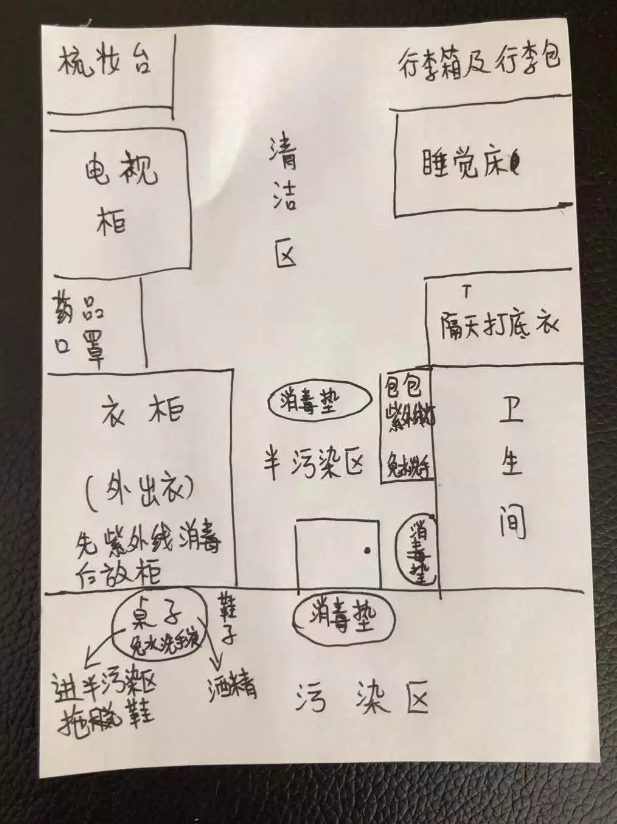 梳妆台
行李箱及行李包
电视
柜
清
洁
区
睡觉床
药品
口罩
隔天打底衣
衣柜
(外出衣)
先紫外线消毒
后放柜
消毒垫
半污染区
包包
紫外线灯
卫
生
间
消
毒
垫
桌子
免水洗手液
鞋
子
消毒垫
进半污染区
拖脱鞋
酒精
污染区